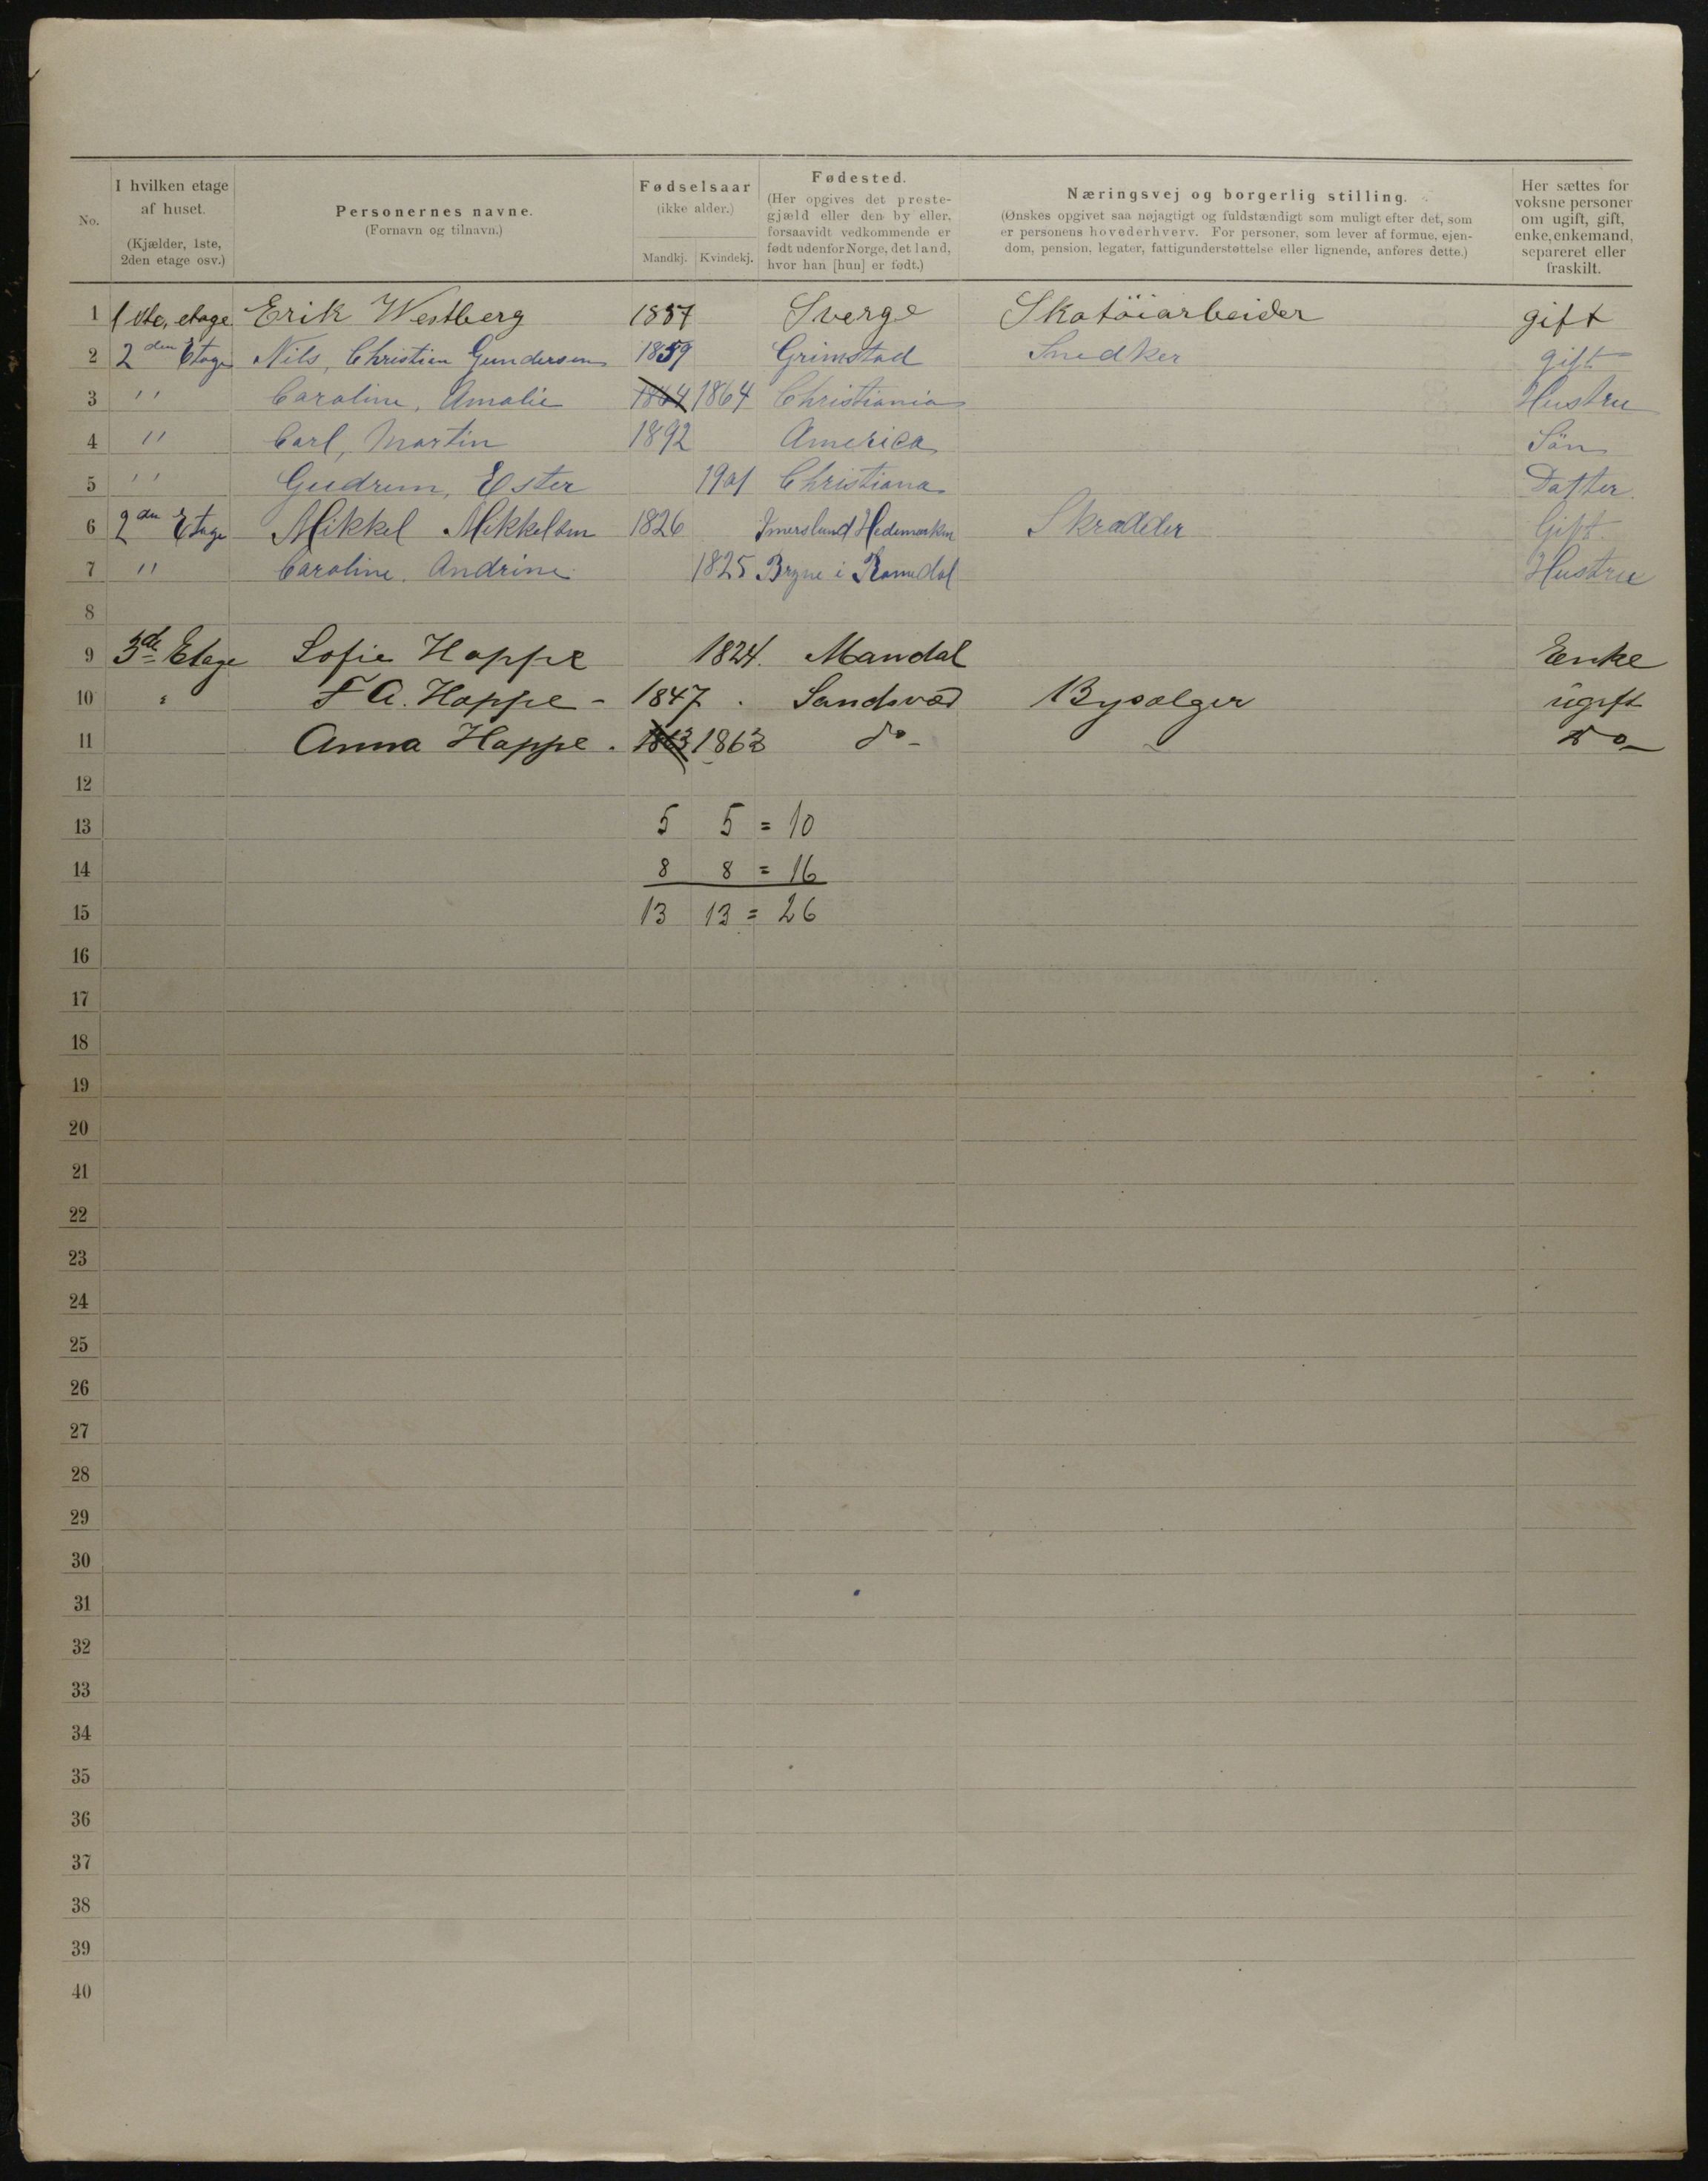 No.
I hvilken etage
af huset.
(Kjælder, 1ste,
2den etage osv.)
Personernes navne.
(Fornavn og tilnavn.)
Fødselsaar
(ikke alder.)
Mandkj. Kvindekj.
Fødested.
(Her opgives det preste-
gjæld eller den by eller,
forsaavidt vedkommende er
født udenfor Norge, det land,
hvor han [hun] er født.)
Næringsvej og borgerlig stilling.
(Ønskes opgivet saa nøjagtigt og fuldstændigt som muligt efter det, som
er personens hovederhverv. For personer, som lever af formue, ejen-
dom, pension, legater, fattigunderstøttelse eller lignende, anføres dette.)
Her sættes for
voksne personer
om ugift, gift,
enke, enkemand,
separeret eller
fraskilt.
1 1ste, etage Erik Westberg 1857 Sverge Skotöiarbeider gift
2 2den Etage Nils, Christian Gundersen 1859 Grimstad Snedker gift
3 " Caroline, Amalie 1864 1864 Christiania Hustru
4 " Carl, Martin 1892 America Sön
5 " Gudrun, Ester 1901 Christiana Datter
6 2den Etage Mikkel Mikkelsen 1826 Imerslund Hedemarken Skrædder Gift
7 " Caroline. Andrine 1825 Bryne i Romedal Hustru
8
9 3de Etage Sofie Hoppe 1824. Mandal Enke
10 " F A. Hoppe - 1847 . Sandsvær Bysælger ugift
11 Anna Hoppe . 1863 1863 do- do-
12
13 5 5 = 10
14 8 8 = 16
15 13 13 = 26
16
17
18
19
20
21
22
23
24
25
26
27
28
29
30
31
32
33
34
35
36
37
38
39
40